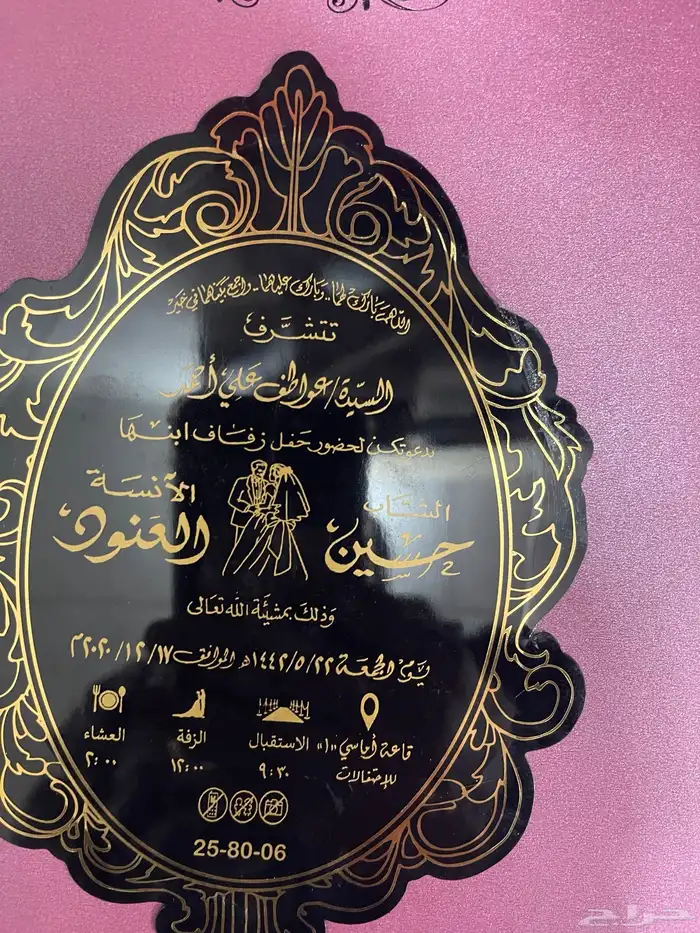 اللهم بارك لهما.. وبارك عليهما.. واجمع بينهما في خير
تتشرف
السيدة/عواطف علي أحمد
بدعوتكن لحضور حفل زفاف ابنها
الشاب
حسين
الآنسة
العنود
وذلك بمشيئة الله تعالى
يوم الجمعة ١٤٤٢/٥/٢٢هـ الموافق ٢٠٢٠/١٢/١٧م
قاعة أماسي "١"
للإحتفالات
الاستقبال
٩:٣٠
الزفة
١٢:٠٠
العشاء
٢:٠٠
25-80-06
حراج